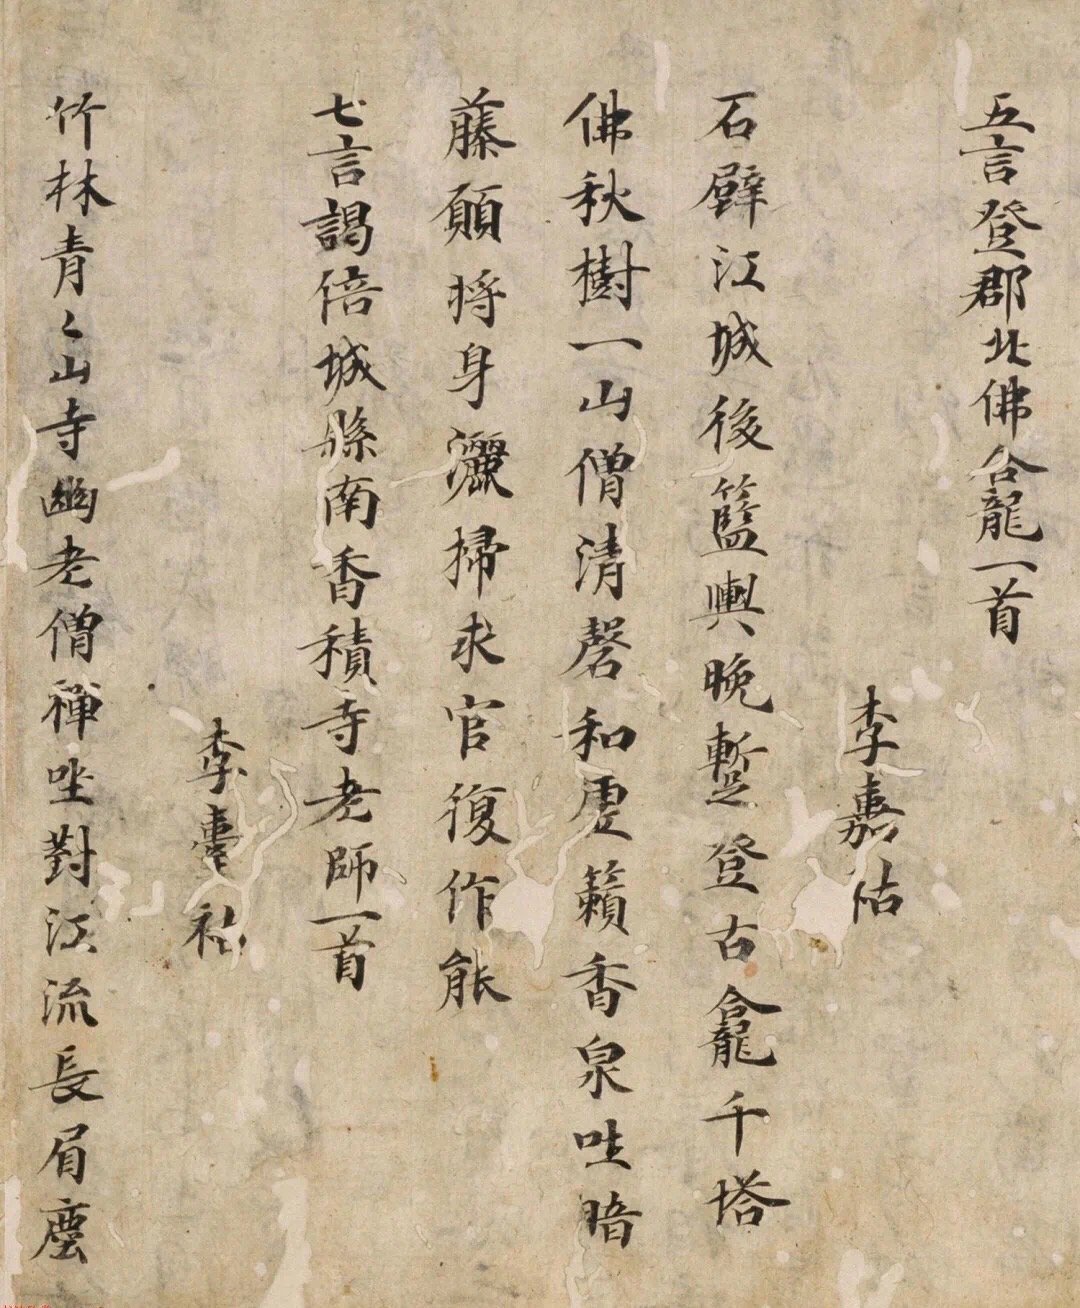 五言登郡北佛龕一首
李嘉祐
石壁江城後籃輿晚蹔登古龕千塔
佛秋樹一山僧清磬和虛籟香泉吐暗
藤願將身灑掃求官復作能
七言謁倍城縣南香積寺老師一首
李嘉祐
竹林青〻山寺幽老僧禪坐對江流長眉塵